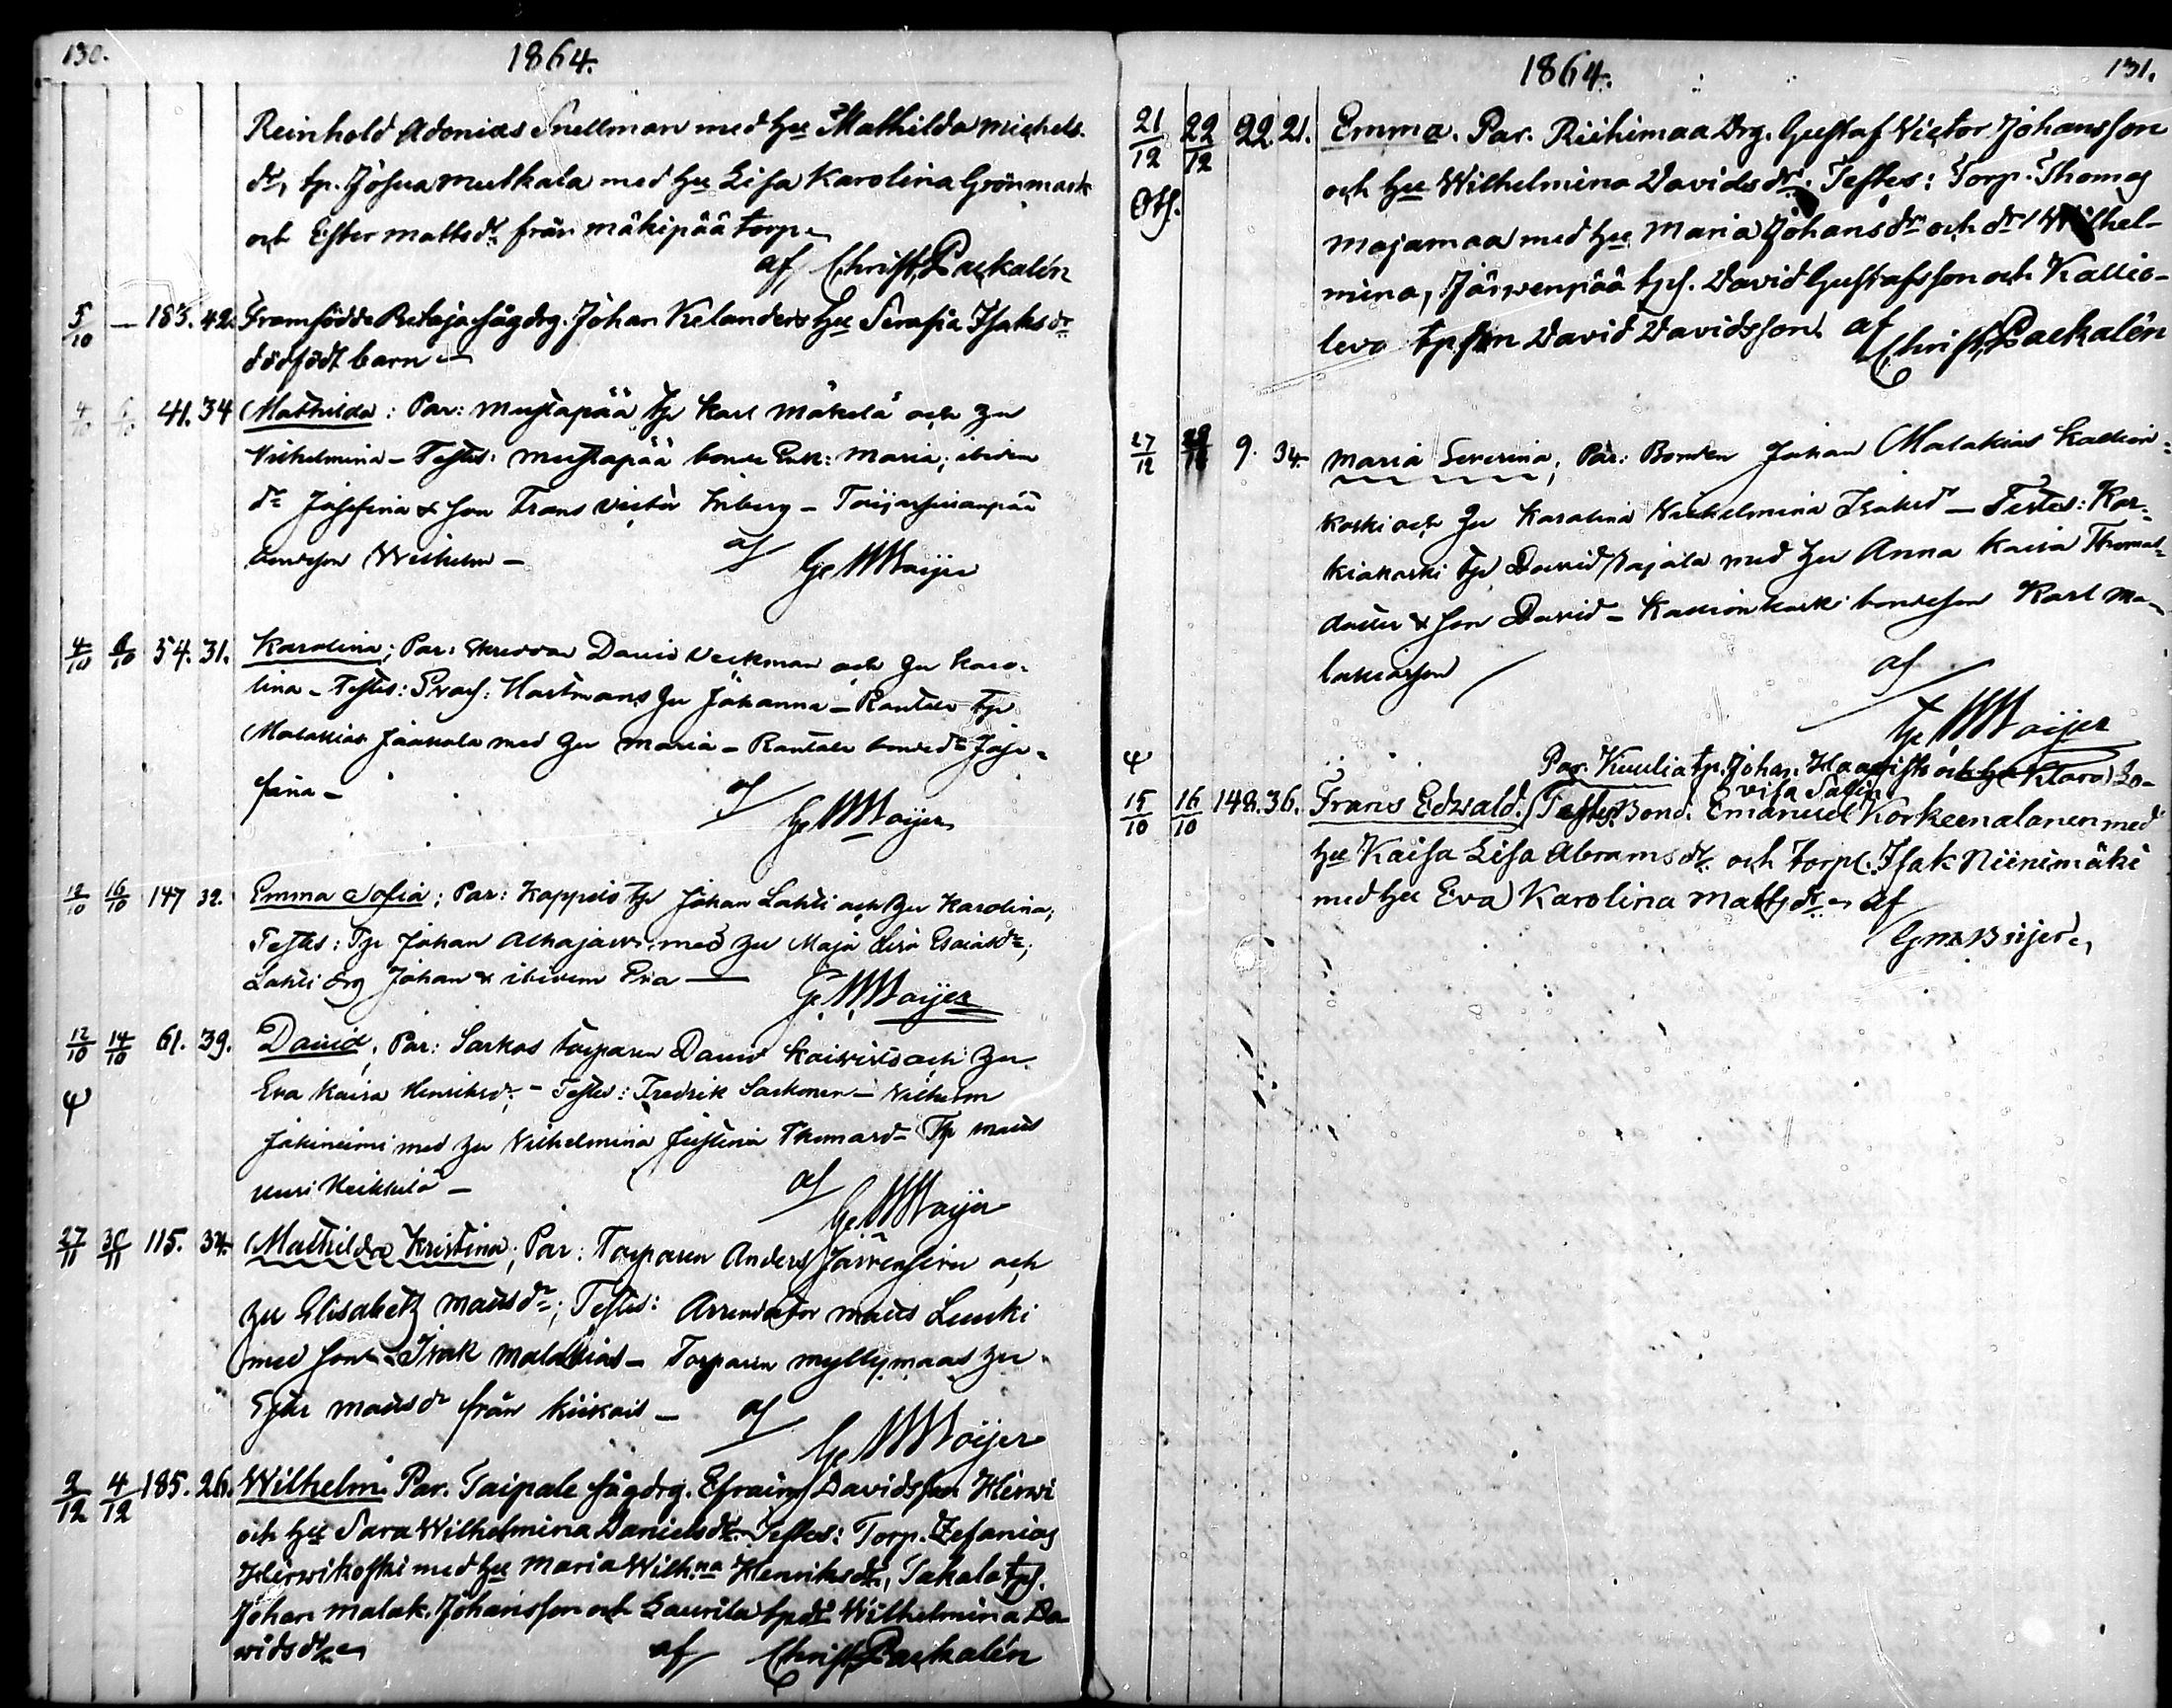 130.
1864.
Reinhold Adonias Snellman med Hu Mathilda Michels-
dr, tp. Josua Mutkala med Hu Lisa Karolina Grönmark
och Ester Mattsdr från Mäkipää torp
af Christ. Packalén
5/10 — 183. 42. Framfödde sågdrg. Johan Kelanders Hu Serafia Isaksdr
dödfödt barn —
4/10 41. 34 Mathilda: Par: Mustapää tp Karl Mäkelä och Hu
Vilhelmina – Testes: Mustapää bonde Enk: Maria; ibidem
dr Josefina & son Frans Victor Friberg –
bondeson Wilhelm – af G. M Boijer
4/10 6/10 54. 31. Karolina; Par: David Veckman och Hu Karo-
lina – Testes: Hartmans Hu Johanna – Rantala tp
Malakias Jaakola med Hu Maria – Rantala bondedr Jose-
fina – af G. M Boijer
12/10 16/10 147 32. Emma Sofia; Par: Kappelis tp Johan Lahti och Hu Karolina;
Testes: Tp Johan med Hu Maja Lisa Esaiasdr;
Lahti drg Johan & ibidem Eva — G. M Boijer
12/10 14/10 61. 39. David, Par: Sarkos torparen David och Hu
Eva Kaisa Henriksdr; – Testes: Fredrik Sarkonen – Vilhelm
Jokiniemi med Hu Vilhelmina Justina Thomasdr Tp Matts
Uusi Heikkilä – af G. M Boijer
ψ
27/11 30/11 115. 34. Mathilda Kristina; Par: Torparen Anders Järvensivu och
Hu Elisabeth Mattsdr; Testes: Arrendator Matts Luuki
med son Isak Malakias – Torparen Myllymaas Hu
Mattsdr från Kiikois – af G. M Boijer
2/12 4/12 185. 26. Wilhelm. Par. Taipale sågdrg. Efraim Davidsson Hirwi
och Hu Sara Wilhelmina Danielsdr. Testes: Torp. Zefanias
Hirwikoski med Hu Maria Wilh:na Henriksdr, Takala tps.
Johan Malak. Johansson och Laurila tpdr Wilhelmina Da-
widsdr af Christ. Packalén
1864.
131.
21/12 22/12 22. 21. Emma. Par. Riihimaa Drg. Gustaf Victor Johansson
och Hu Wilhelmina Davidsdr. Testes: Torp. Thomas
Majamaa med Hu Maria Johansdr och dr Wilhel-
mina, Järwenpää tps. David Gustafsson och Kallio-
levo tpson David Davidsson. af
Christ. Packalén
27/12 9. 34. Maria Severina; Par: Bonden Johan Malakias Kallion-
koski och Hu Karolina Vilhelmina Isaksdr — Testes: Kor-
kiakoski tp David Rajala med Hu Anna Kaisa Thomas-
dotter & son David – Kallionkoski bondeson Karl Ma-
lakiasson af
G. M Boijer
ψ
Par. Kuulia tp. Johan Haavisto och Hu Klara Lo-
visa
15/10 16/10 142. 36. Frans Edvald. Testes: Bond. Emanuel Korkeenalanen med
Hu Kaisa Lisa Abramsdr och torp. Isak Niinimäki
med Hu Eva Karolina Mattsdr af
G M Boijer